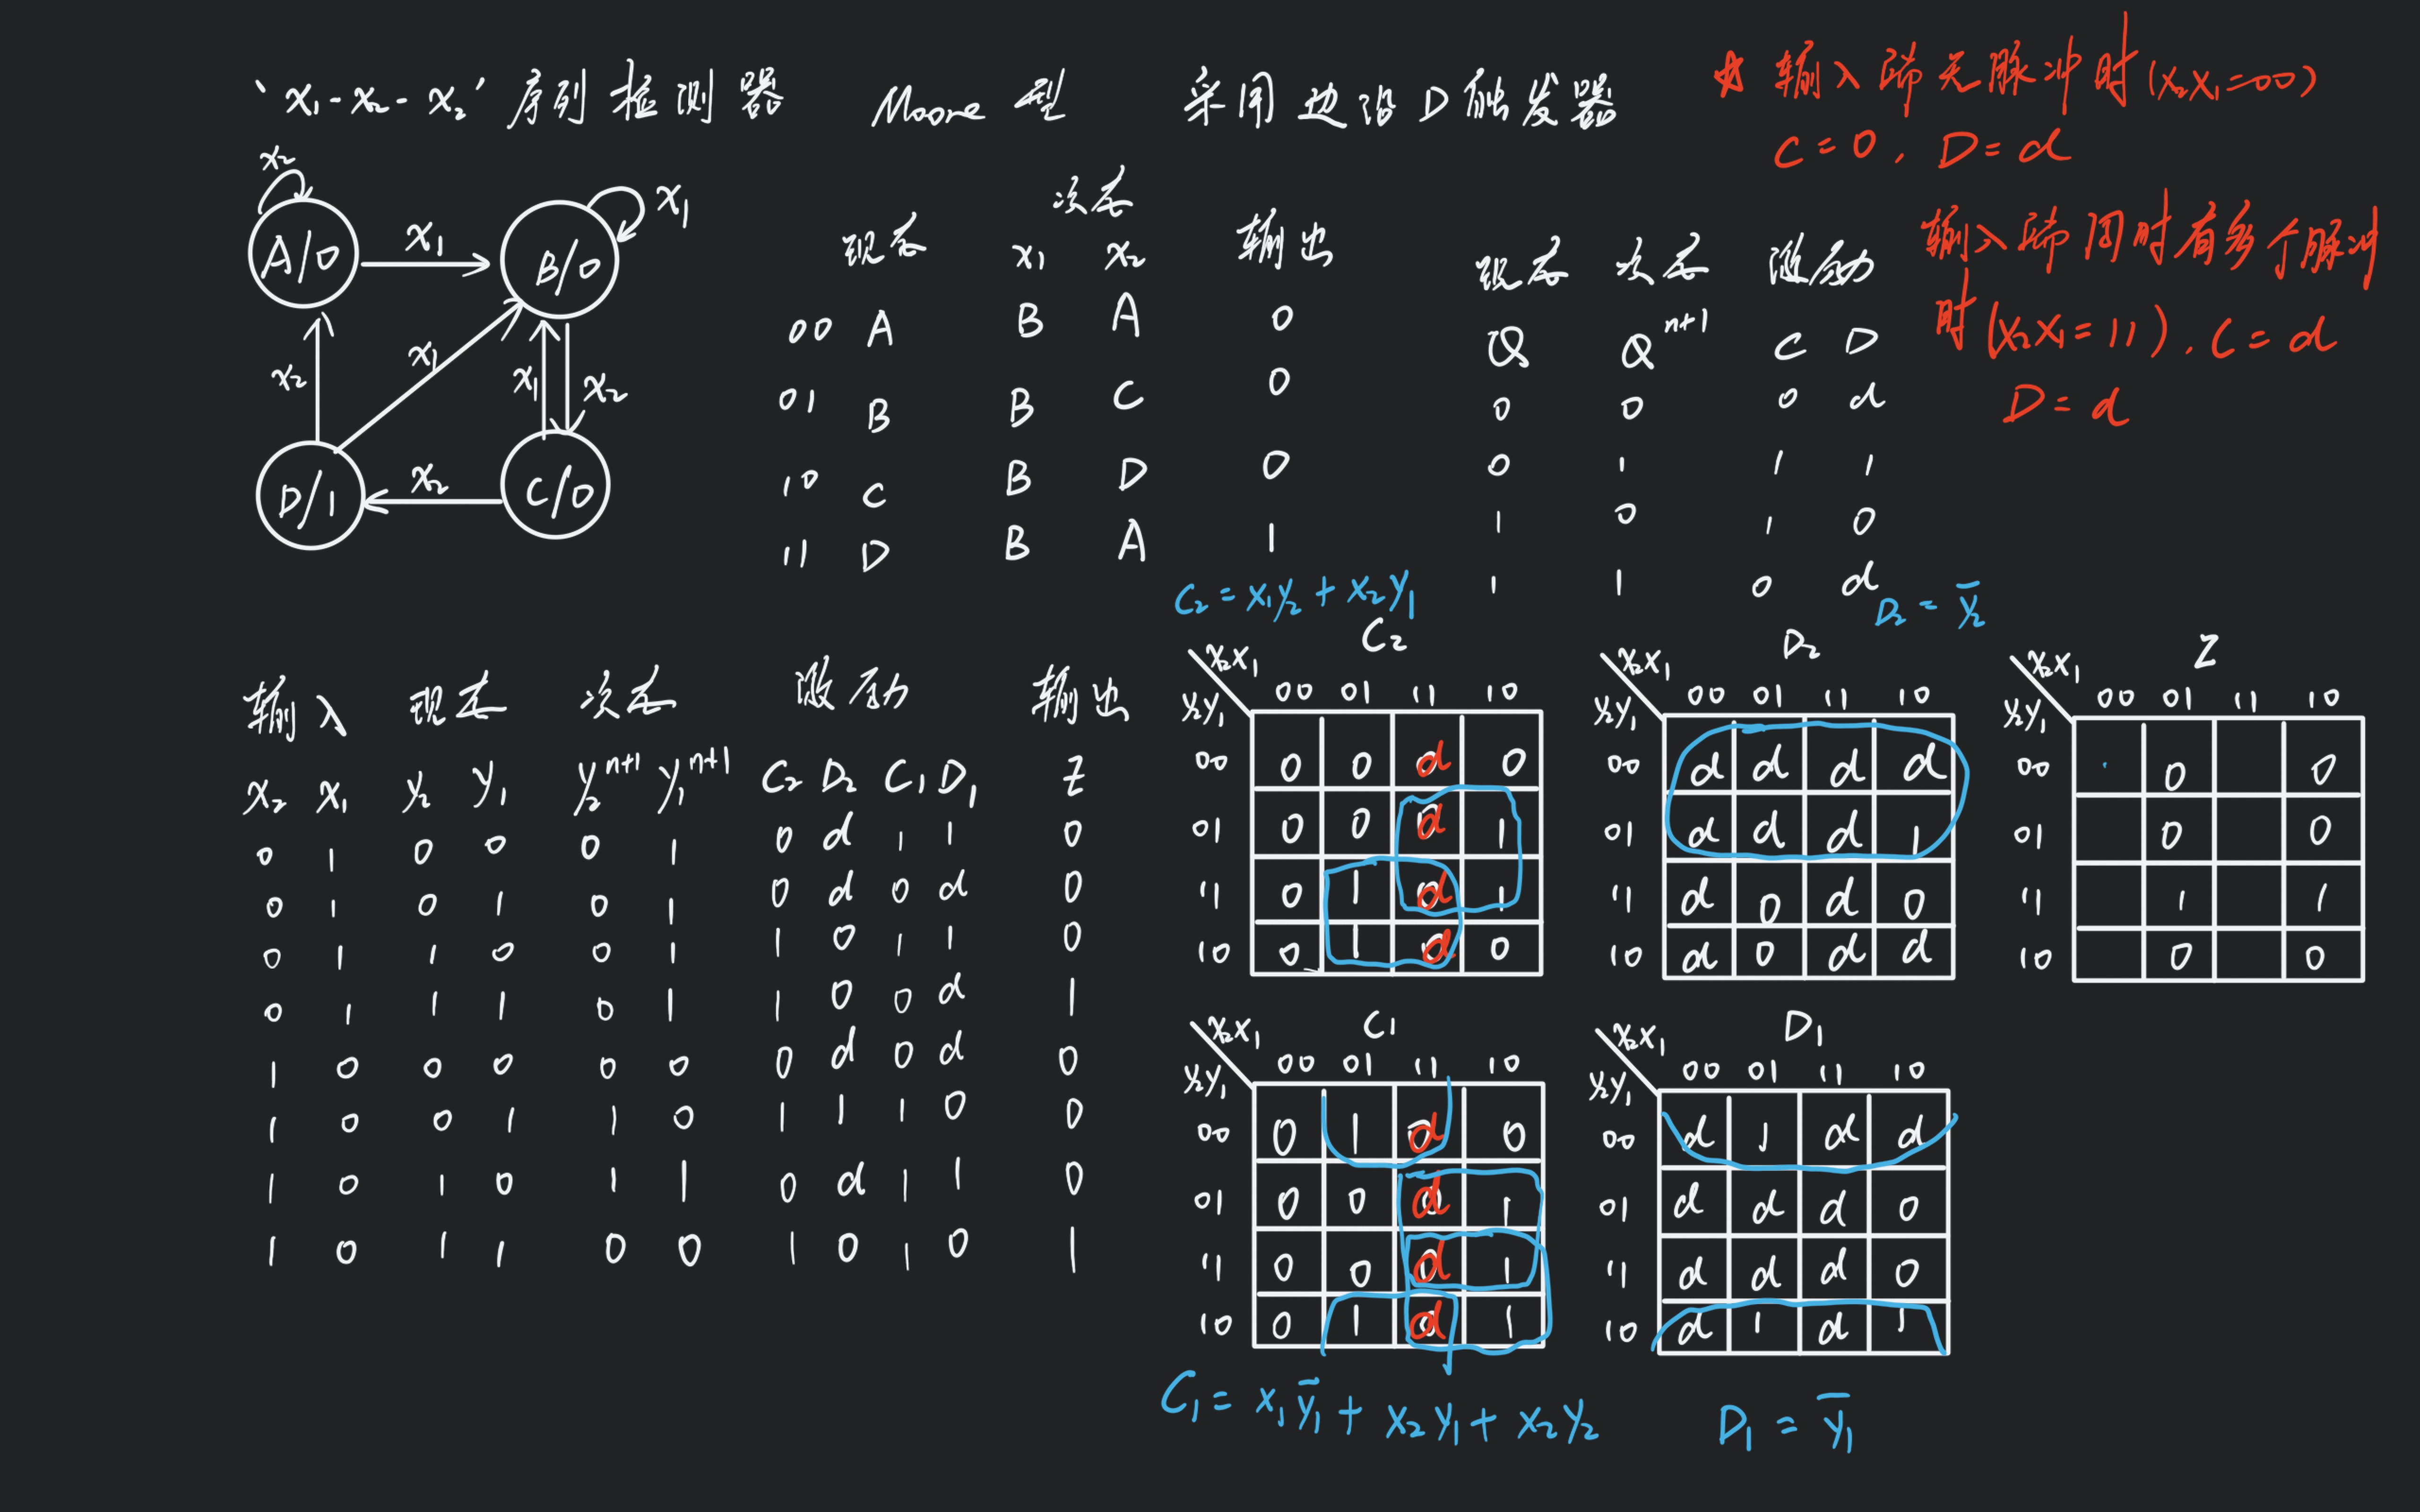 ‘x₁-x₂-x₂’ 序列检测器 Moore 型 采用边沿D触发器
☆ 输入端无脉冲时(x₂x₁=00)
C=0, D=d
输入端同时有多个脉冲
时(x₂x₁=11), C=d
D=d
x₂
A/0
x₁
B/0
x₁
x₂
x₁
x₁
x₂
D/1
x₂
C/0
次态
现态 x₁ x₂ 输出
00 A B A 0
01 B B C 0
10 C B D 0
11 D B A 1
现态 次态 激励
Q Qⁿ⁺¹ C D
0 0 0 d
0 1 1 1
1 0 1 0
1 1 0 d
输入 现态 次态 激励 输出
x₂ x₁ y₂ y₁ y₂ⁿ⁺¹ y₁ⁿ⁺¹ C₂ D₂ C₁ D₁ Z
0 1 0 0 0 1 0 d 1 1 0
0 1 0 1 0 1 0 d 0 d 0
0 1 1 0 0 1 1 0 1 1 0
0 1 1 1 0 1 1 0 0 d 1
1 0 0 0 0 0 0 d 0 d 0
1 0 0 1 1 0 1 1 1 0 0
1 0 1 0 1 1 0 d 1 1 0
1 0 1 1 0 0 1 0 1 0 1
C₂=x₁y₂+x₂y₁
C₂
x₂x₁
y₂y₁ 00 01 11 10
00 0 0 d 0
01 0 0 d 1
11 0 1 d 1
10 0 1 d 0
D₂=y̅₂
D₂
x₂x₁
y₂y₁ 00 01 11 10
00 d d d d
01 d d d 1
11 d 0 d 0
10 d 0 d d
Z
x₂x₁
y₂y₁ 00 01 11 10
00 0 0
01 0 0
11 1 1
10 0 0
C₁
x₂x₁
y₂y₁ 00 01 11 10
00 0 1 d 0
01 0 0 d 1
11 0 0 d 1
10 0 1 d 1
C₁=x₁y̅₁+x₂y₁+x₂y₂
D₁
x₂x₁
y₂y₁ 00 01 11 10
00 d 1 d d
01 d d d 0
11 d d d 0
10 d 1 d 1
D₁=y̅₁